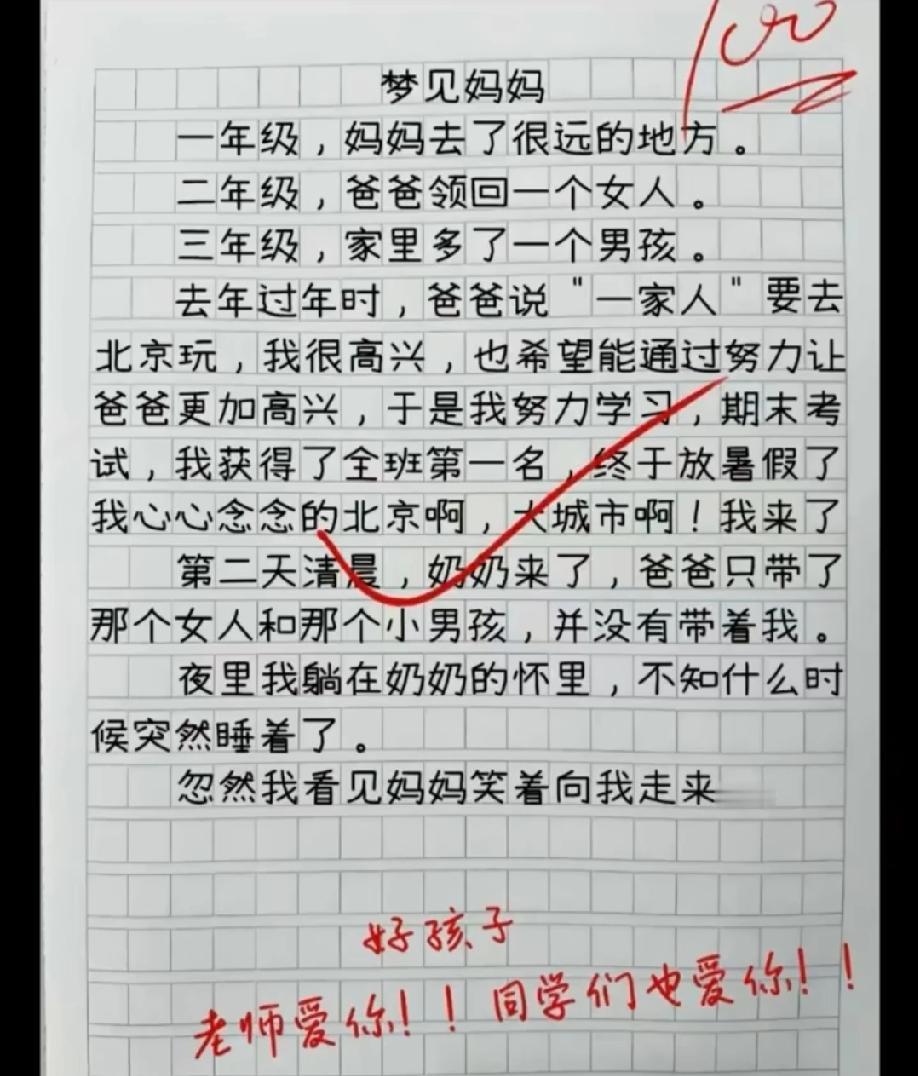 100
梦见妈妈
一年级，妈妈去了很远的地方。
二年级，爸爸领回一个女人。
三年级，家里多了一个男孩。
去年过年时，爸爸说"一家人"要去
北京玩，我很高兴，也希望能通过努力让
爸爸更加高兴，于是我努力学习，期末考
试，我获得了全班第一名，终于放暑假了
我心心念念的北京啊，大城市啊！我来了
第二天清晨，奶奶来了，爸爸只带了
那个女人和那个小男孩，并没有带着我。
夜里我躺在奶奶的怀里，不知什么时
候突然睡着了。
忽然我看见妈妈笑着向我走来
好孩子
老师爱你！！同学们也爱你！！